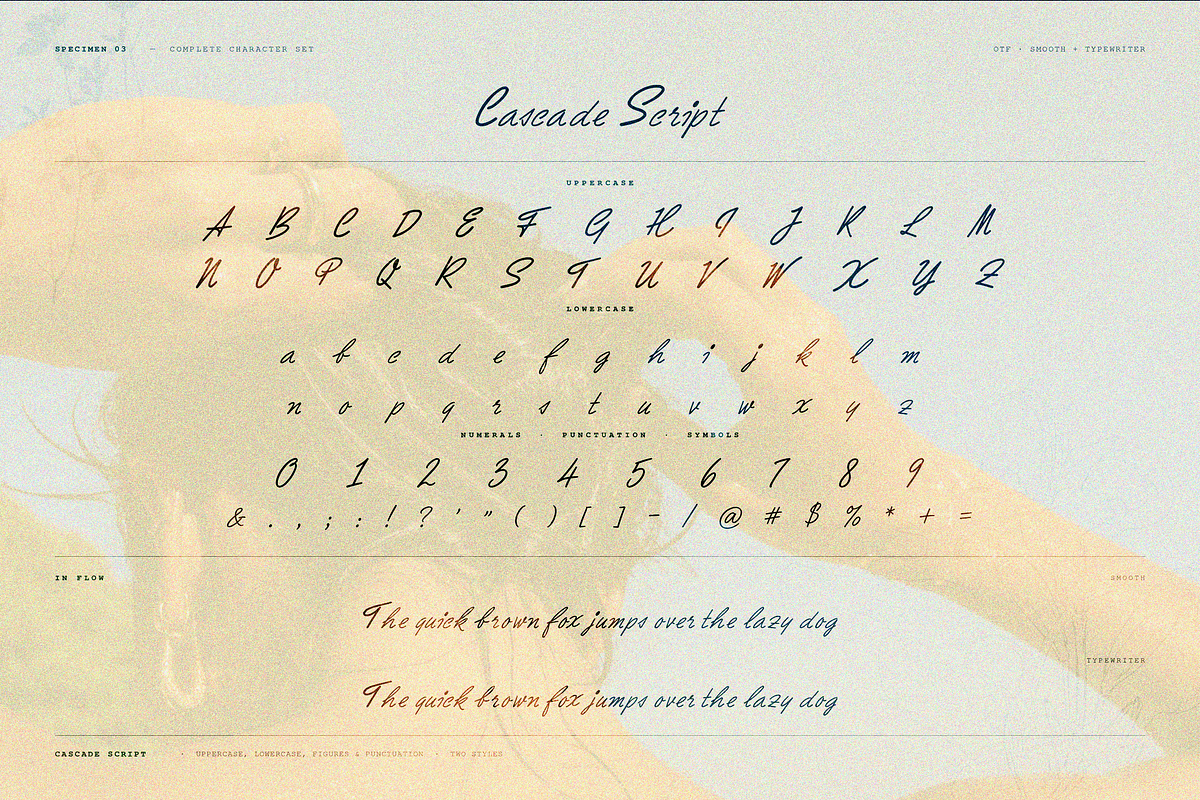 SPECIMEN 03 — COMPLETE CHARACTER SET
OTF · SMOOTH + TYPEWRITER
Cascade Script
UPPERCASE
A B C D E F G H I J K L M
N O P Q R S T U V W X Y Z
LOWERCASE
a b c d e f g h i j k l m
n o p q r s t u v w x y z
NUMERALS · PUNCTUATION · SYMBOLS
0 1 2 3 4 5 6 7 8 9
& . , ; : ! ? ' " ( ) [ ] - / @ # $ % * + =
IN FLOW
SMOOTH
The quick brown fox jumps over the lazy dog
TYPEWRITER
The quick brown fox jumps over the lazy dog
CASCADE SCRIPT · UPPERCASE, LOWERCASE, FIGURES & PUNCTUATION · TWO STYLES